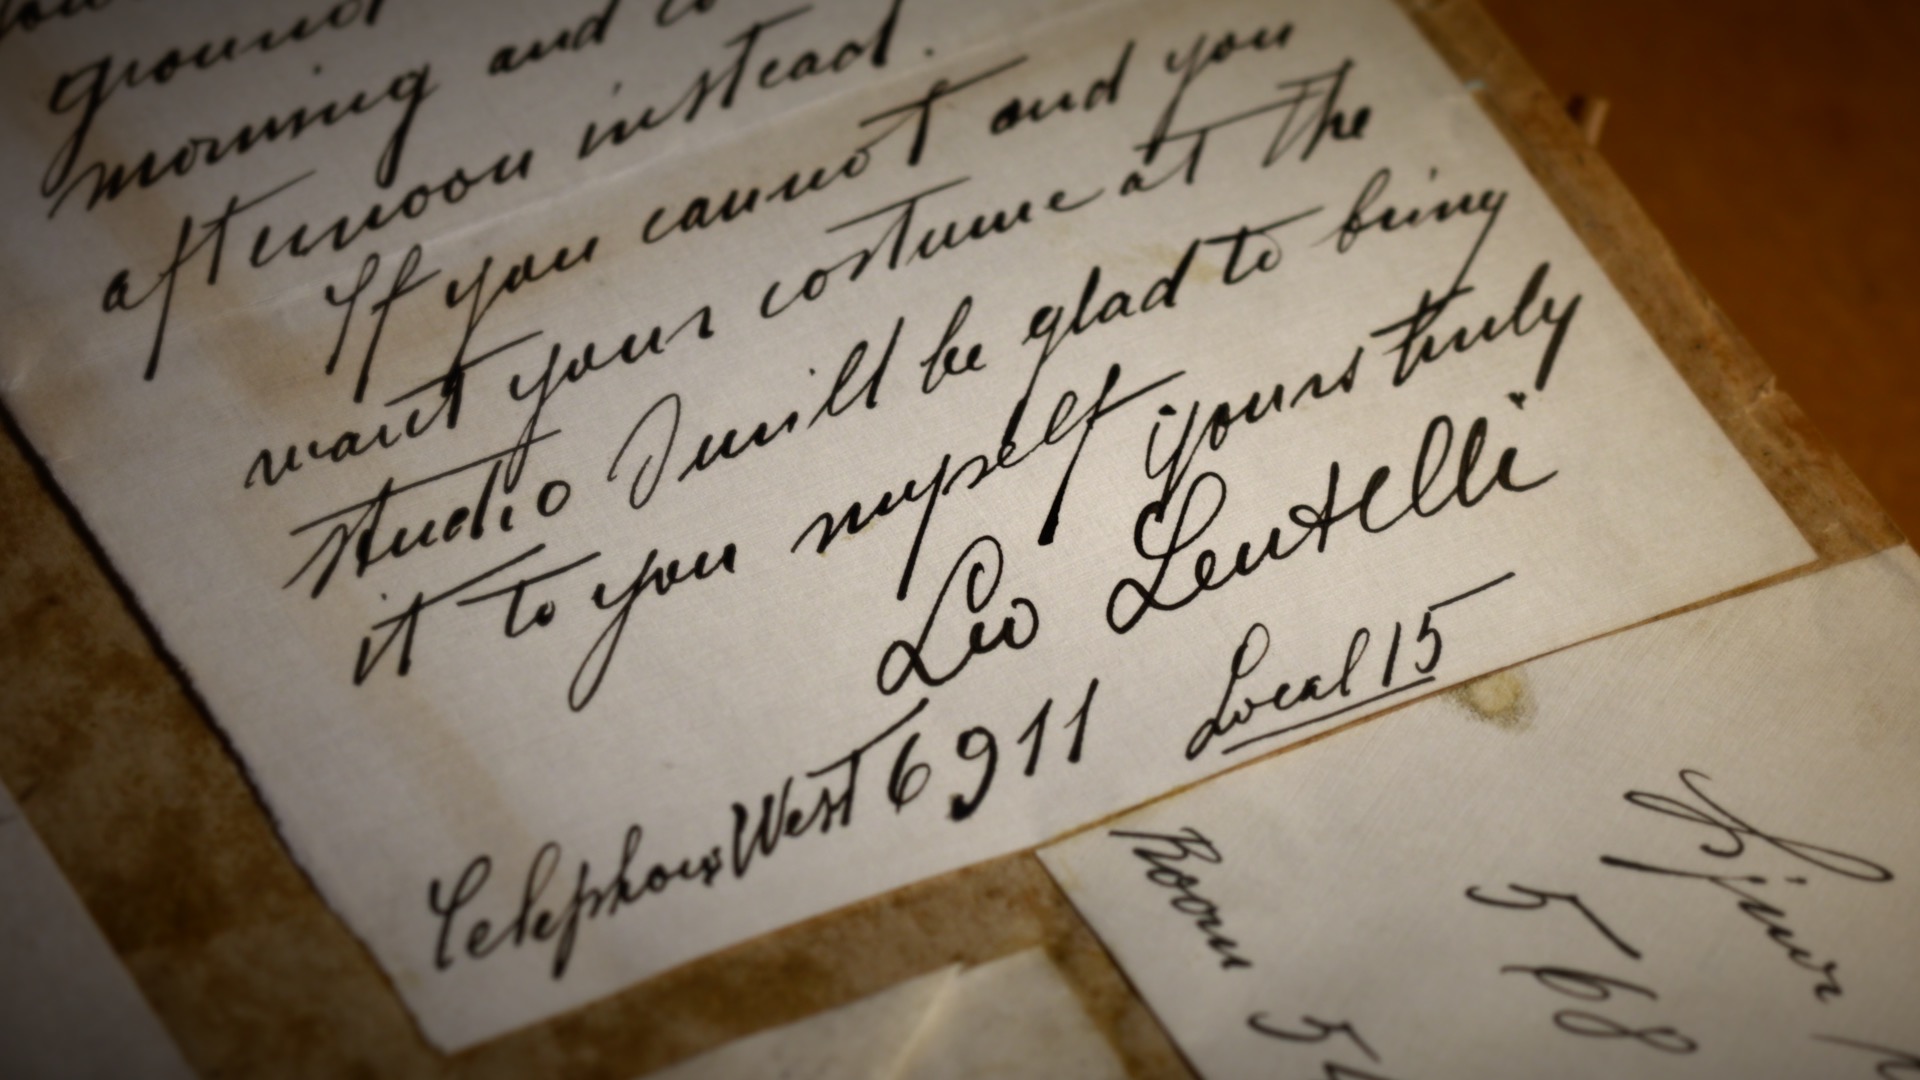 ground
morning and
afternoon instead.
If you cannot and you
want your costume at the
studio I will be glad to bring
it to you myself yours truly
Leo Lentelli
Telephone West 6911 Local 15
Room
5
568